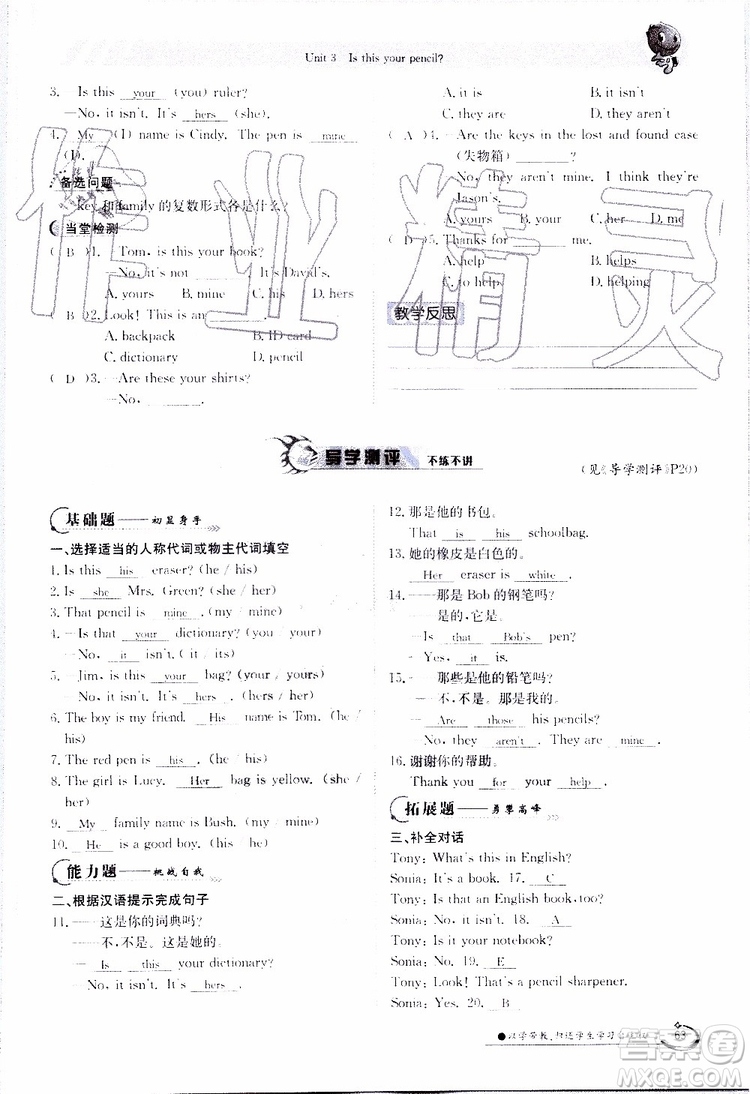 Unit 3 Is this your pencil?
3. Is this your (you) ruler?
—No, it isn't. It's hers (she).
4. My (I) name is Cindy. The pen is mine
(I).
备选问题
key 和 family 的复数形式各是什么?
当堂检测
( B )1. —Tom, is this your book?
—No, it's not ______. It's David's.
A. yours B. mine C. his D. hers
( B )2. Look! This is an ______.
A. backpack B. ID card
C. dictionary D. pencil
( D )3. —Are these your shirts?
—No, ______.
A. it is B. it isn't
C. they are D. they aren't
( A )4. —Are the keys in the lost and found case
(失物箱) ______?
—No, they aren't mine. I think they're
Jason's.
A. yours B. your C. her D. me
( D )5. Thanks for ______ me.
A. help B. helps
C. to help D. helping
教学反思
导学测评 不练不讲
(见《导学测评》P20)
基础题——初显身手
一、选择适当的人称代词或物主代词填空
1. Is this his eraser? (he / his)
2. Is she Mrs. Green? (she / her)
3. That pencil is mine. (my / mine)
4. —Is that your dictionary? (you / your)
—No, it isn't. (it / its)
5. —Jim, is this your bag? (your / yours)
—No, it isn't. It's hers. (hers / her)
6. The boy is my friend. His name is Tom. (he /
his)
7. The red pen is his. (he / his)
8. The girl is Lucy. Her bag is yellow. (she /
her)
9. My family name is Bush. (my / mine)
10. He is a good boy. (he / his)
能力题——挑战自我
二、根据汉语提示完成句子
11. ——这是你的词典吗?
——不,不是。这是她的。
—Is this your dictionary?
—No, it isn't. It's hers.
12. 那是他的书包。
That is his schoolbag.
13. 她的橡皮是白色的。
Her eraser is white.
14. ——那是 Bob 的钢笔吗?
——是的,它是。
—Is that Bob's pen?
—Yes, it is.
15. ——那些是他的铅笔吗?
——不,不是。那是我的。
—Are those his pencils?
—No, they aren't. They are mine.
16. 谢谢你的帮助。
Thank you for your help.
拓展题——勇攀高峰
三、补全对话
Tony: What's this in English?
Sonia: It's a book. 17. C
Tony: Is that an English book, too?
Sonia: No, it isn't. 18. A
Tony: Is it your notebook?
Sonia: No. 19. E
Tony: Look! That is a pencil sharpener.
Sonia: Yes. 20. B
63
作业精灵
答案圈